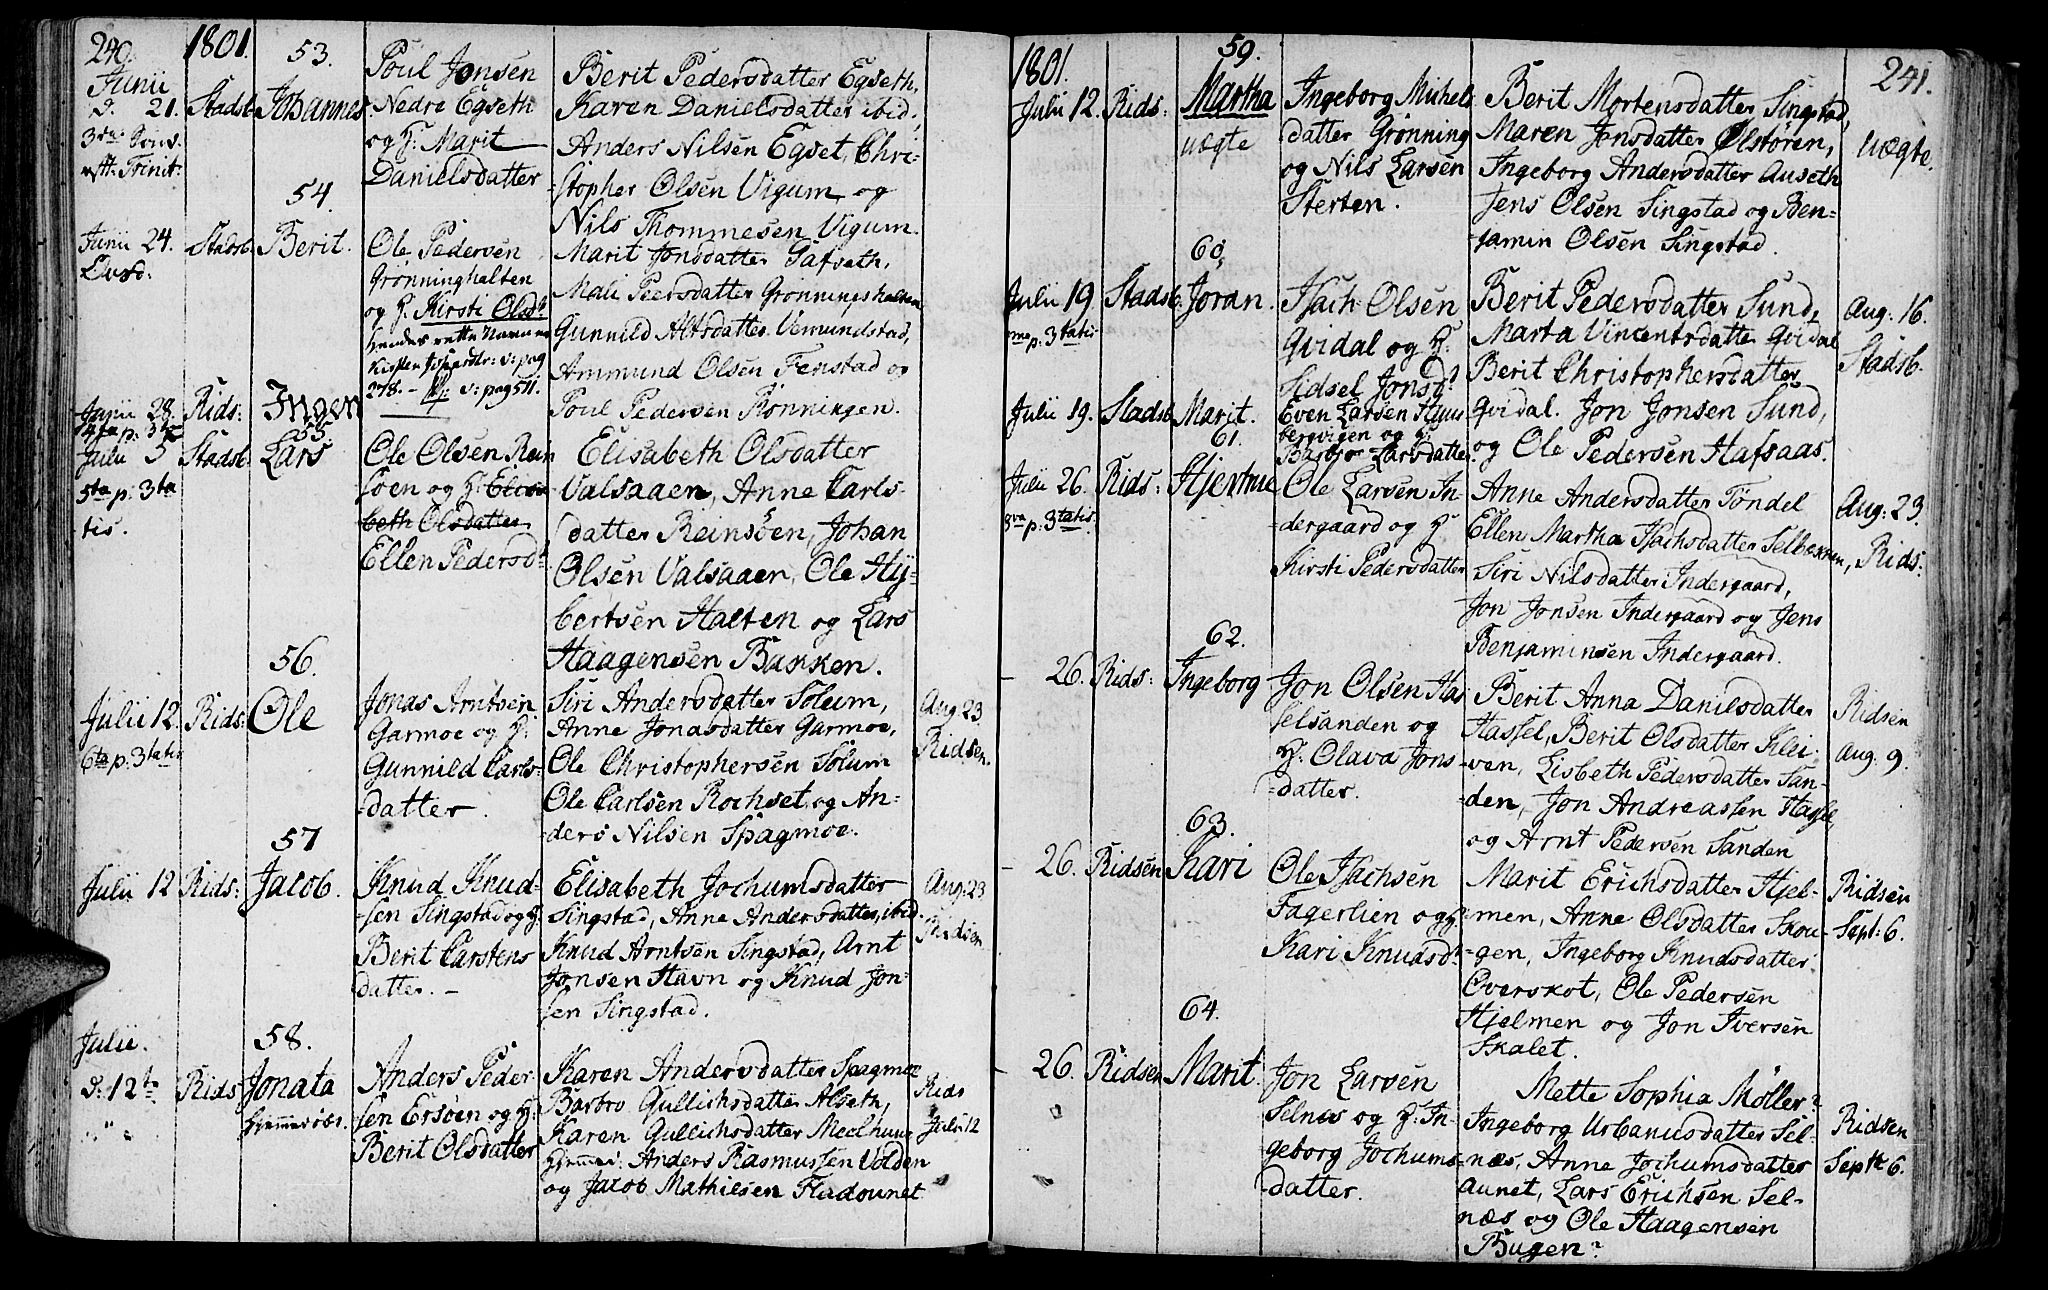 240. 1801. 53.
Junii
d. 21. Stadsb. Johannes
3die Søns.
eft: Trinit:
Poul Jonsen
Nedre Egseth
og H: Marit
Danielsdatter
Berit Pedersdatter Egseth,
Karen Danielsdatter ibid,
Anders Nilsen Egset, Chri-
stopher Olsen Vigum og
Nils Thommesen Vigum.
54.
Junii 24. Stadsb. Berit.
Ole Pedersen
Grønninghalten
og H. Kirsti Olsd:
hendes rette Navn er
v: pag
278. – v: pag 511.
Marit Jonsdatter Gafseth,
Mali Peersdatter Grønningshalten
Gunnild Alfsdatter Vemundstad,
Ammund Olsen Fenstad og
Poul Pedersen Rønningen.
Junii 28. Rids: Ingen
4ta p: 3ta
55
Julii 5 Stadsb. Lars
5ta p: 3ta
tis.
Ole Olsen Rein
søen og H. Elisa
beth Olsdatter
Ellen Pedersd:
Elisabeth Olsdatter
Valsaaen, Anne Carls-
datter Reinsøen, Johan
Olsen Valsaaen, Ole Hy-
bertsen Halten og Lars
Haagensen Bakken.
56.
Julii 12. Rids: Ole
6ta p: 3tatis
Jonas Arntsen
Garmoe og H:
Gunnild Carls-
-datter.
Siri Andersdatter Solum,
Anne Jonasdatter Garmoe,
Ole Christophersen Solum
Ole Carlsen Rochset, og An-
-ders Nilsen Spagmoe.
Aug: 23
Ridsen.
57
Julii 12 Rids: Jacob.
Knud Knud-
-sen Singstad og H:
Berit Carstens
datter. –
Elisabeth Jochumsdatter
Singstad, Anne Andersdatter, ibid.
Knud Arntsen Singstad, Arnt
Jonsen Havn og Knud Jon-
sen Singstad.
Aug: 23
Ridsen
58.
Julii.
d: 12te Rids Jonata
hjemmedøbt.
Anders Peder
sen Ersøen og H:
Berit Olsdatter
Karen Andersdatter Spagmoe
Barbro Gullichsdatter Alseth,
Karen Gullichsdatter Meelhuus
Anders Rasmussen Volden
og Jacob Mathiesen Fladounet
Rids
Julii 12
1801. 59. 241.
Julii 12. Rids: Martha
uægte
Ingeborg Michels
datter Grønning
og Nils Larsen
Sterten.
Berit Mortensdatter Singstad,
Maren Jonsdatter Olstøren,
Ingeborg Andersdatter Auseth
Jens Olsen Singstad og Ben-
-jamin Olsen Singstad.
Uægte.
60,
Julii 19 Stadsb. Joran.
p: 3tatis
Isach Olsen
Qvidal og H.
Sidsel Jonsd:
Berit Pedersdatter Sund,
Marta Vincentsdatter Qvidal
Berit Christophersdatter
Qvidal. Jon Jonsen Sund,
og Ole Pedersen Hafsaas.
Aug: 16.
Stadsb.
Julii 19. Stadsb Marit.
Even Larsen
og H:
Barbro Larsdatter
61.
Julii 26. Rids: Hjertrue
8va p: 3tatis.
Ole Larsen In-
-dergaard og H:
Kirsti Pedersdatter
Anne Andersdatter Tøndel
Ellen Martha Isachsdatter Selbekken,
Siri Nilsdatter Indergaard,
Jon Jonsen Indergaard og Jens
Benjaminsen Indergaard.
Aug: 23.
Rids:
62.
– 26. Rids: Ingeborg
Jon Olsen Has
selsanden og
H: Olava Jons
-datter.
Berit Anna Danilsdatter
Hassel, Berit Olsdatter Klei-
-ven, Lisbeth Pedersdatter San-
den, Jon Andreassen Hassel,
og Arnt Pedersen Sanden
Ridsen
Aug. 9.
63.
– 26. Ridsen Kari
Ole Isachsen
Fagerlien og H:
Kari Knudsd:
Marit Erichsdatter Hjel-
-men, Anne Olsdatter Skou-
-gen, Ingeborg Knudsdatter
Overskot, Ole Pedersen
Hjelmen og Jon Iversen
Skalet.
Ridsen
Sept: 6.
64.
– 26. Ridsen Marit.
Jon Larsen
Selnes og H: In-
geborg Jochums
datter.
Mette Sophia Møller?
Ingeborg Urbanusdatter Sel-
-næs, Anne Jochumsdatter
Aunet, Lars Erichsen Sel-
-næs og Ole Haagensen
Bugen?
Ridsen
Septr 6.